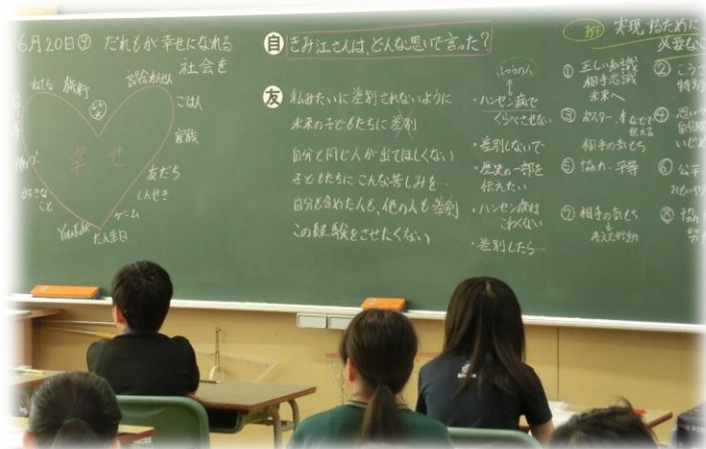 6月20日㊍ だれもが幸せになれる
社会を
旅行
ごはん
家族
友だち
しんせき
ゲーム
たん生日
YouTube
好きな
こと
幸せ
自 きみ江さんは、どんな思いで言った?
友 私みたいに差別されないように
未来の子どもたちに差別
自分と同じ人が出てほしくない
子どもたちにこんな苦しみを…
自分も含めた人も、他の人も差別
この経験をさせたくない
・ハンセン病で
くらべさせない
・差別しないで
・歴史の一部を
伝えたい
・ハンセン病は
こわくない
・差別したら…
実現するために
必要な
① 正しい知識
相手意識
未来へ
②
特別
③ ポスター
伝える
相手の気もち
④
⑤ 協力・平等
⑥ 公平
⑦ 相手の気もち
考えた行動
⑧